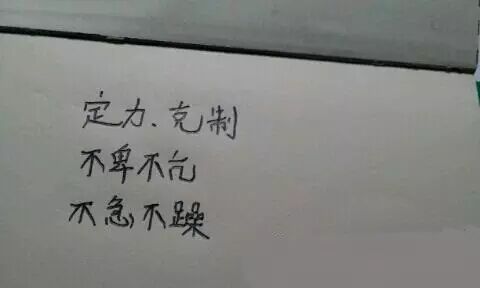 定力、克制
不卑不亢
不急不躁